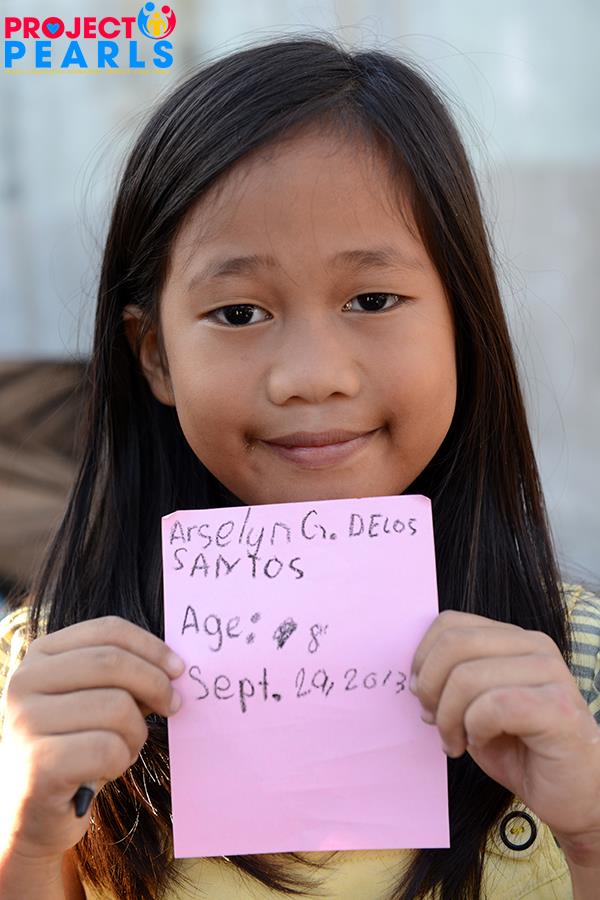 PROJECT
PEARLS
Arselyn G. DELOS
SANTOS
Age: 8
Sept. 29, 2013